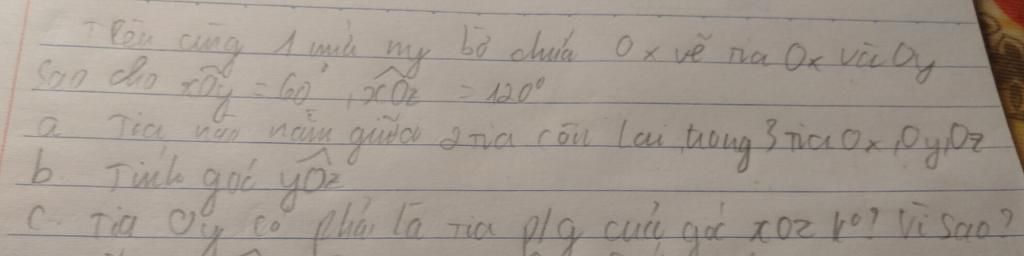 Trên cùng 1 nửa mp bờ chứa Ox vẽ tia Ox và Oy
sao cho xOy = 60°, xOz = 120°
a. Tia nào nằm giữa 2 tia còn lại trong 3 tia Ox, Oy, Oz
b. Tính góc yOz
c. Tia Oy có phải là tia p/g của góc xOz ko? Vì sao?